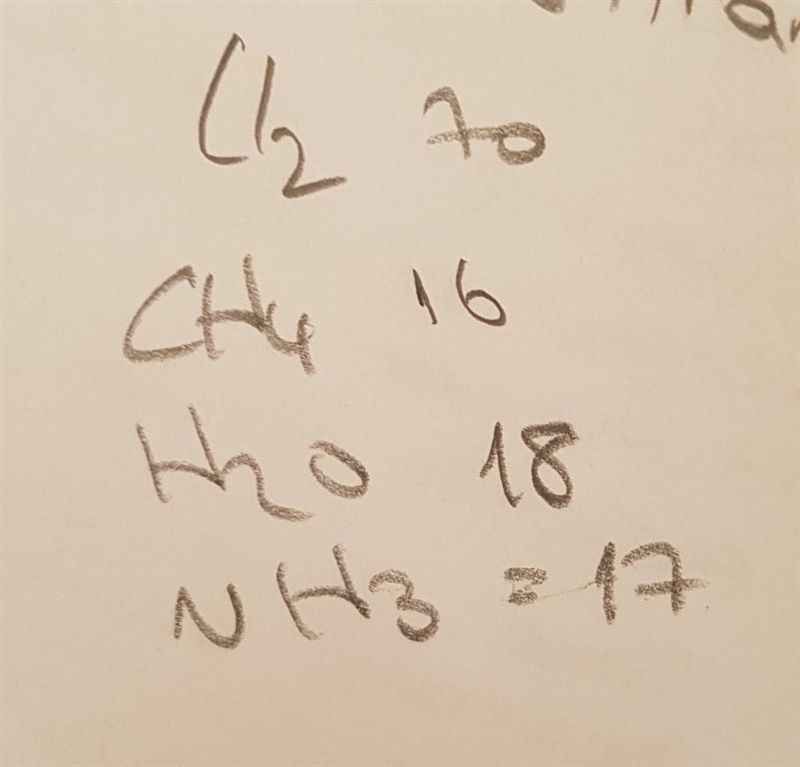 Cl2 70
CH4 16
H2O 18
NH3 = 17